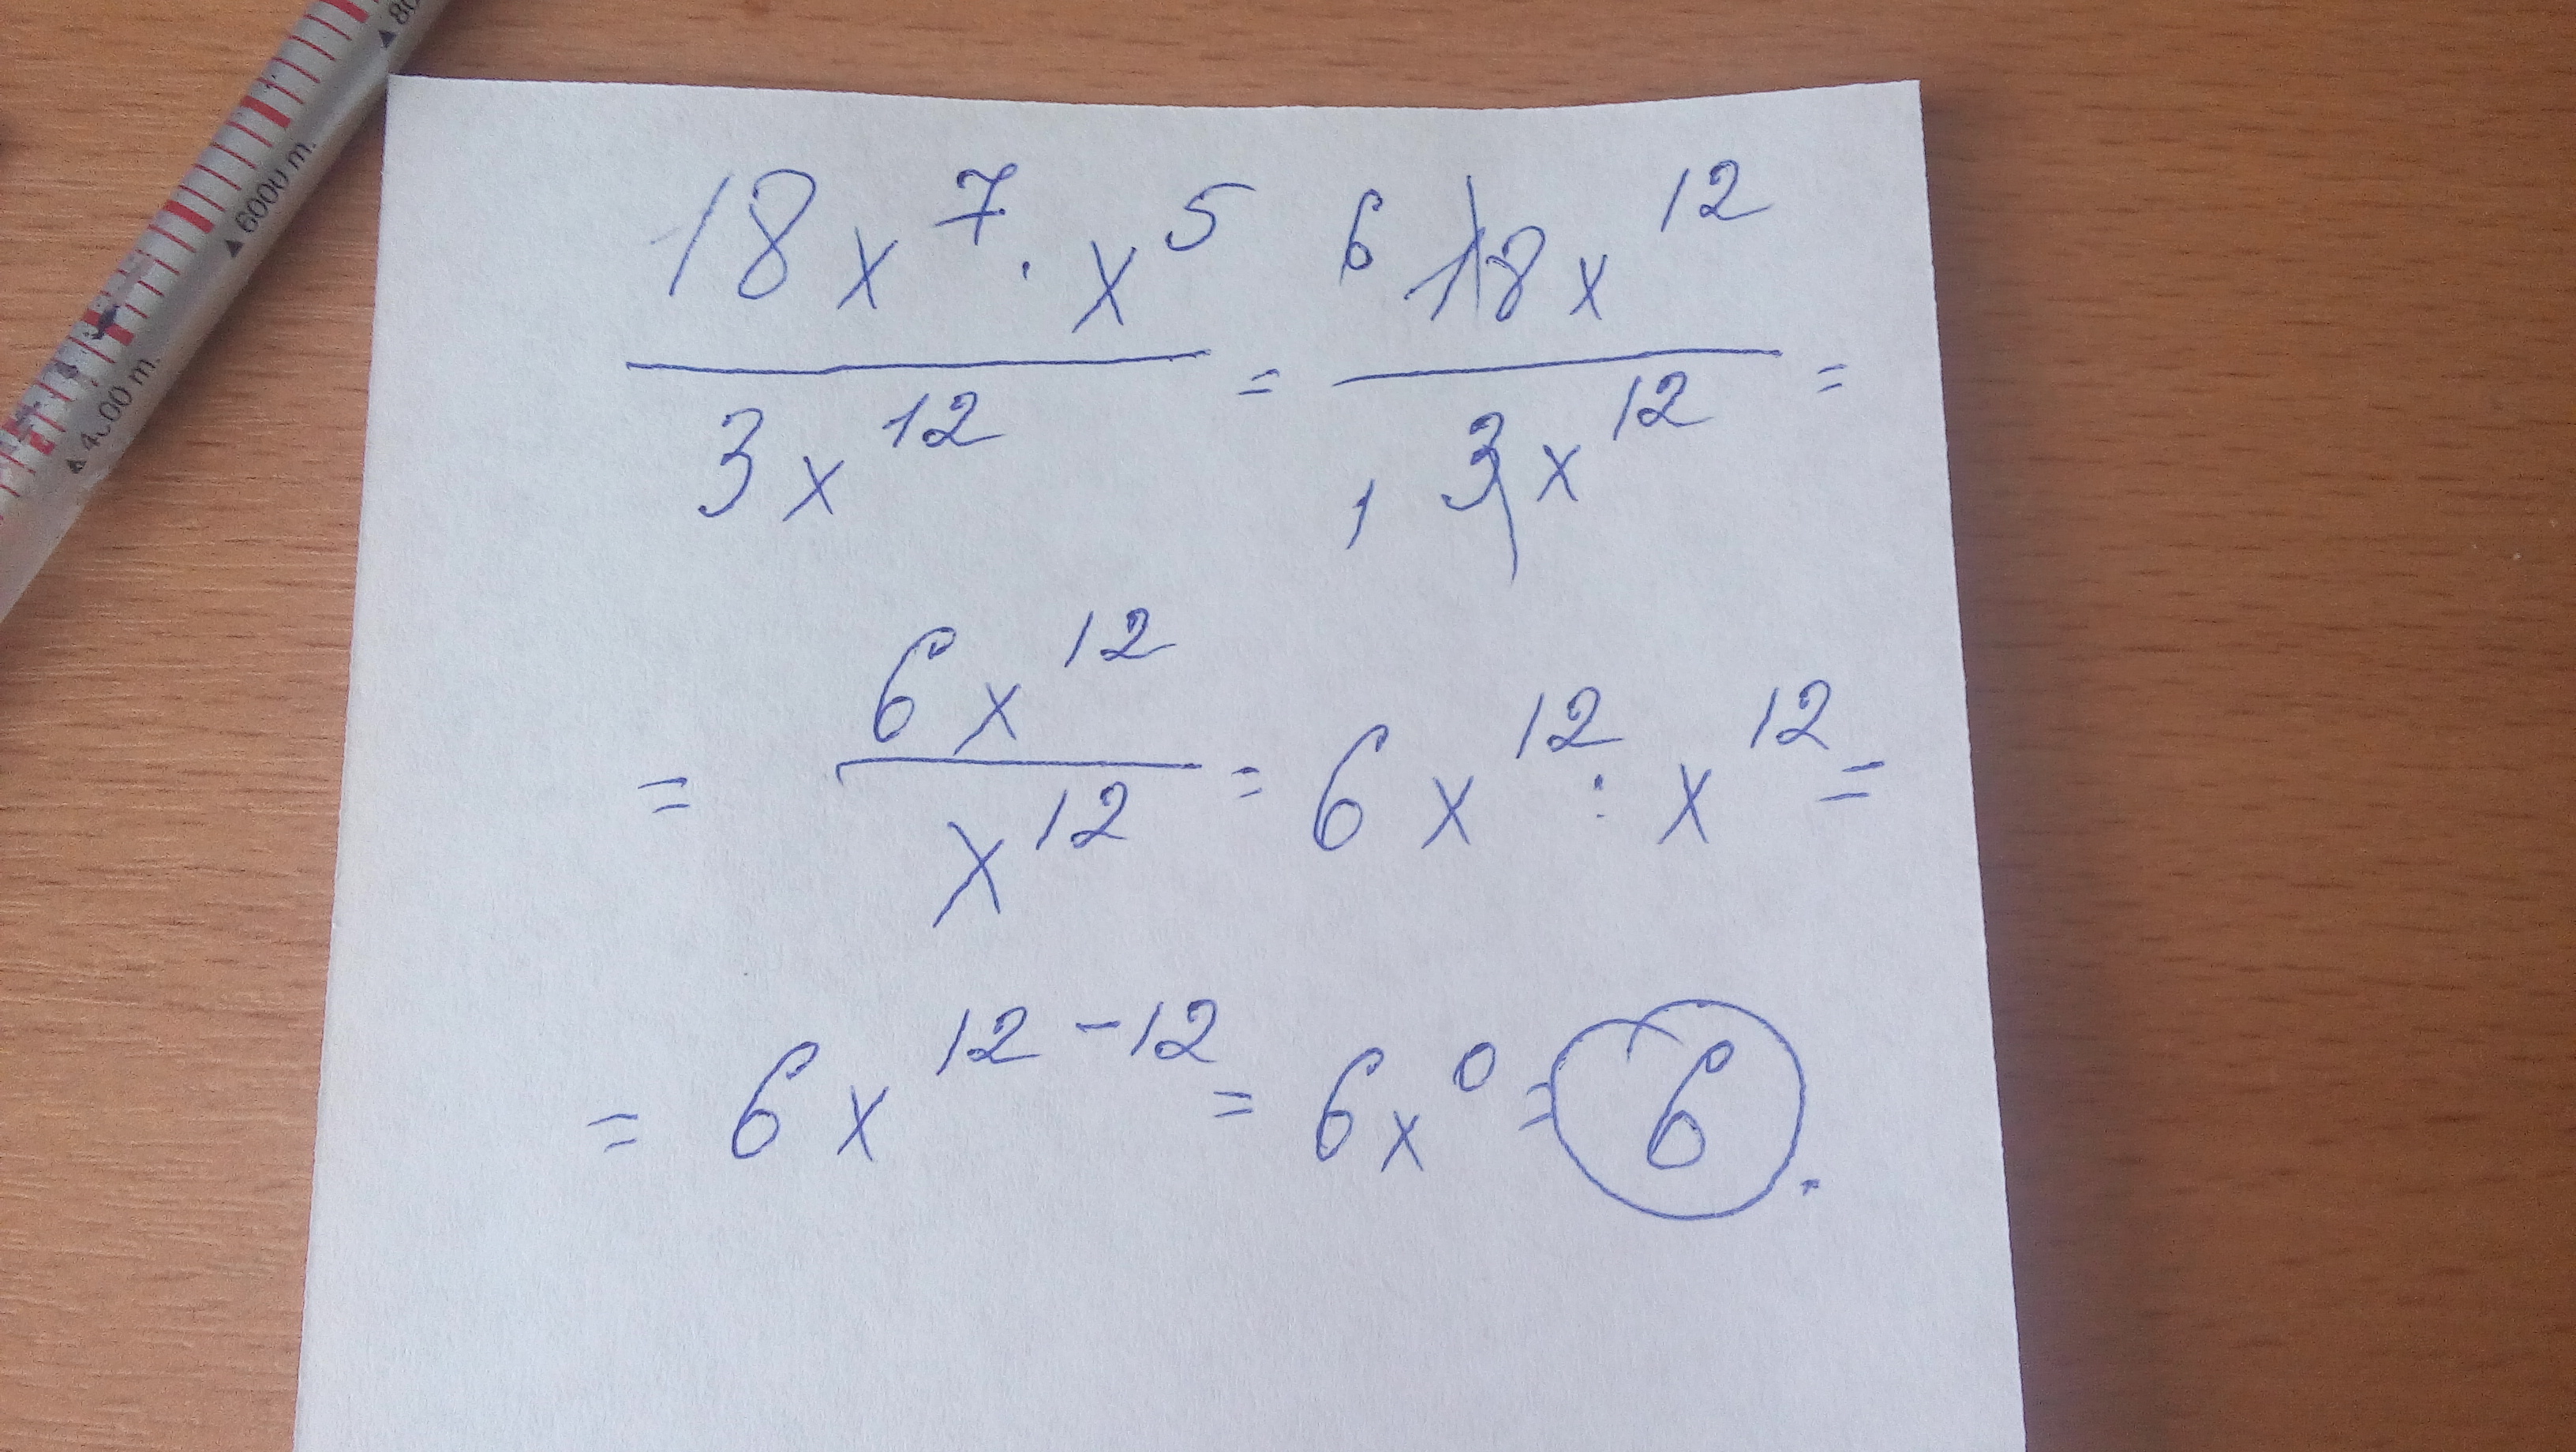 ▲ 80
▲ 6000 m.
18x⁷ · x⁵ / 3x¹² = ⁶18x¹² / ₁3x¹² =
= 6x¹² / x¹² = 6x¹² : x¹² =
= 6x¹²⁻¹² = 6x⁰ = 6.